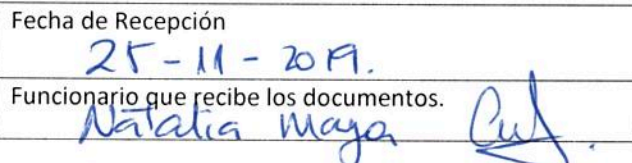 Fecha de Recepción
25-11-2019.
Funcionario que recibe los documentos.
Natalia Maya